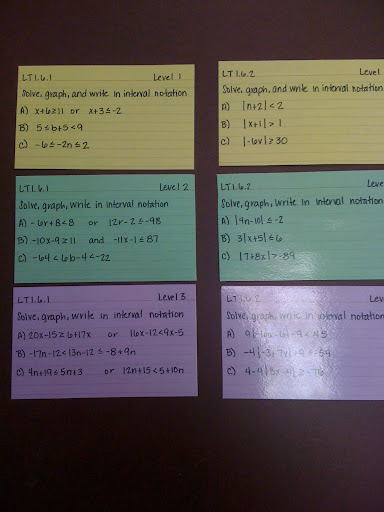 LT1.6.1 Level 1
Solve, graph, and write in interval notation
A) x+6≥11 or x+3≤-2
B) 5≤b+5<9
C) -6≤-2n≤2
LT1.6.2 Level
Solve, graph, and write in interval notation
A) |n+2|<2
B) |x+1|>1
C) |-6v|≥30
LT1.6.1 Level 2
Solve, graph, write in interval notation
A) -6r+8<8 or 12r-2≤-98
B) -10x-9≥11 and -11x-1≤87
C) -64<6b-4<-22
LT1.6.2 Leve
Solve, graph, write in interval notation
A) |9n-10|≤-2
B) 3|x+5|≤6
C) |7+8x|>-89
LT1.6.1 Level 3
Solve, graph, write in interval notation
A) 20x-15≥6+17x or 16x-12<9x-5
B) -17n-12<13n-12≤-8+9n
C) 4n+19≤5n+3 or 12n+15<5+10n
LT1.6.2 Lev
Solve, graph, write in interval notation
A)
B)
C)